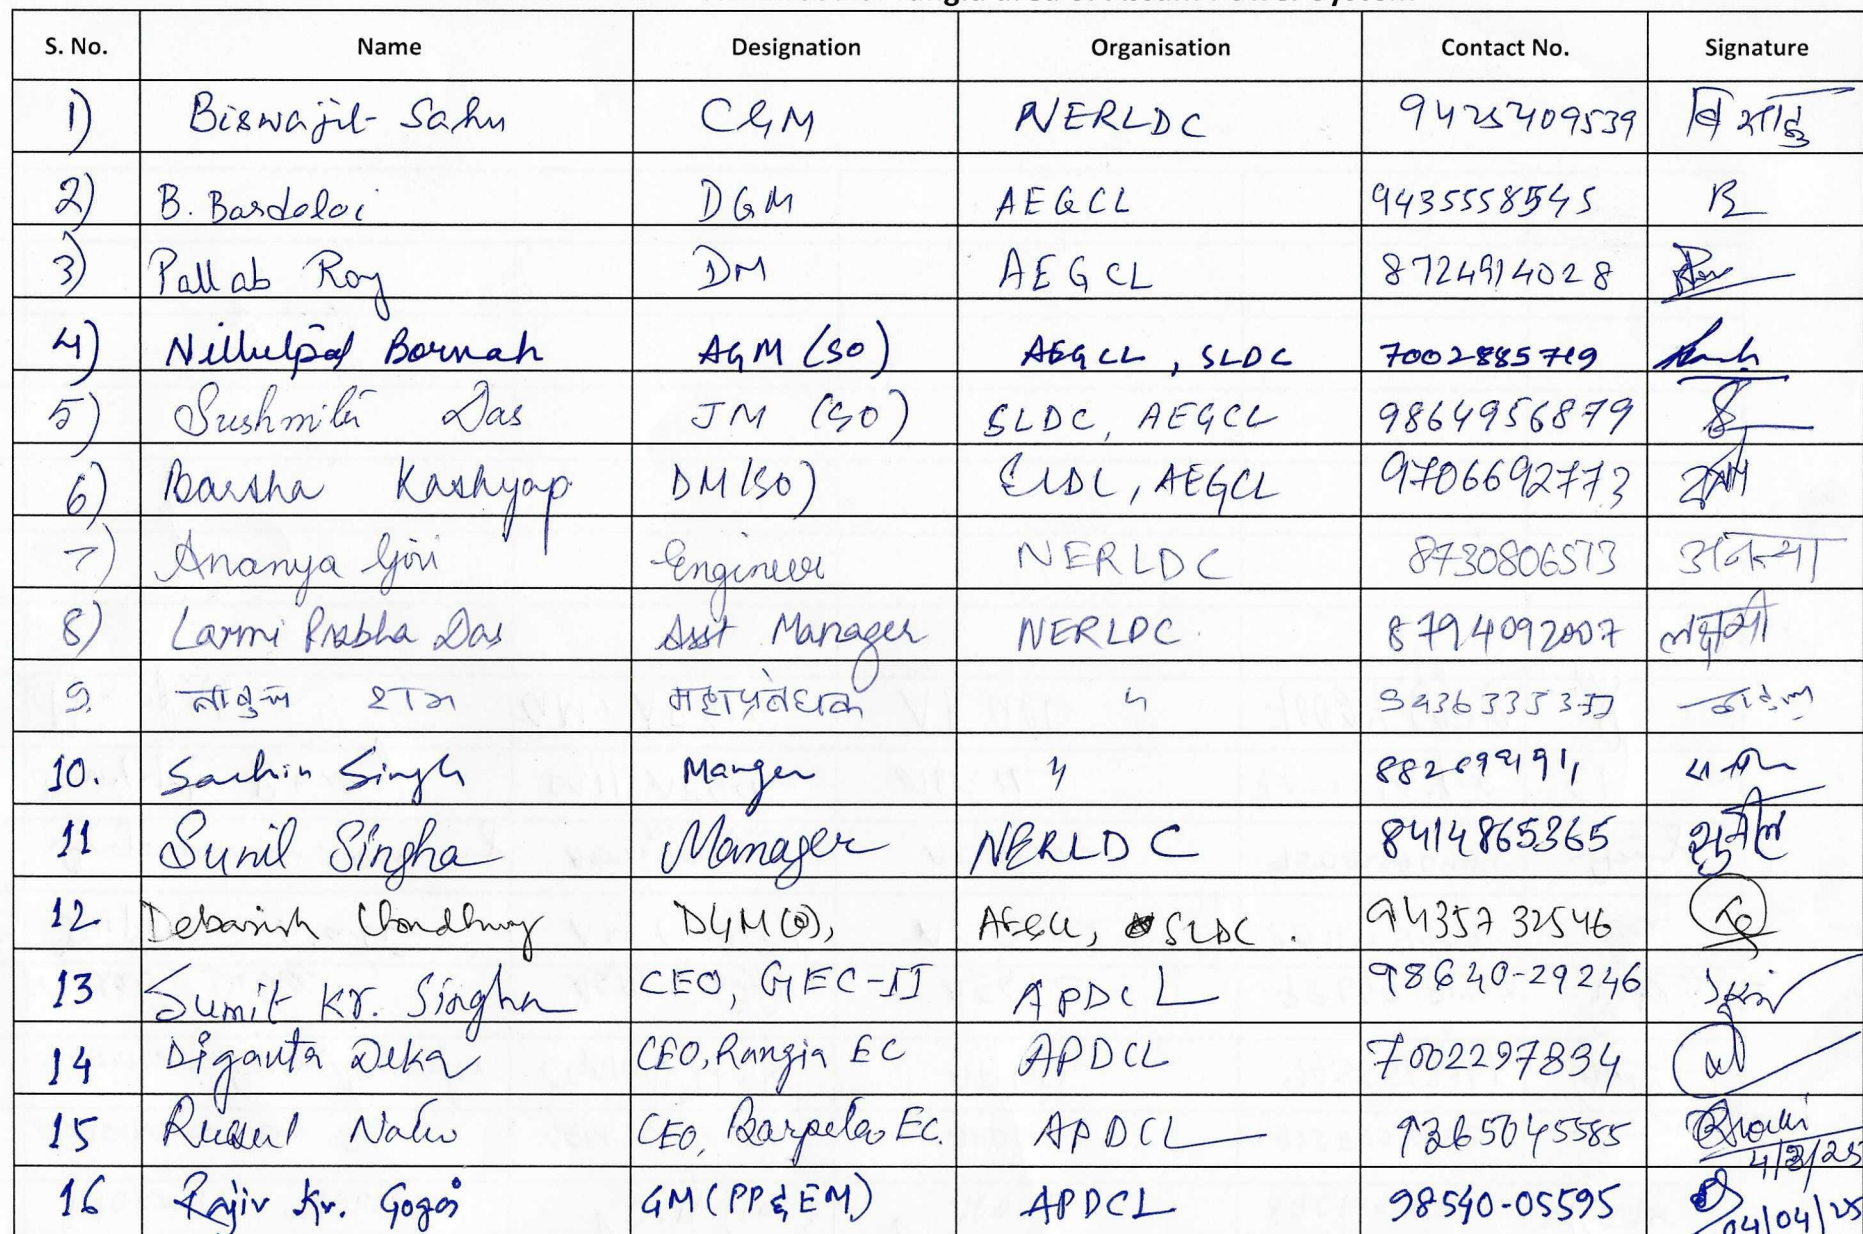 S. No. Name Designation Organisation Contact No. Signature
1) Biswajit Sahu CGM NERLDC 9425409539
2) B. Bardoloi DGM AEGCL 9435558545
3) Pallab Roy DM AEGCL 8724914028
4) Nillutpal Bornah AGM (SO) AEGCL, SLDC 7002885719
5) Sushmita Das JM (SO) SLDC, AEGCL 9864956879
6) Barsha Kashyap DM(SO) SLDC, AEGCL 9706692773
7) Ananya Giri Engineer NERLDC 8730806513 अनन्या
8) Laxmi Prabha Das Asst Manager NERLDC 8794092007 लक्ष्मी
9. महाप्रबंधक "
10. Sachin Singh Manger "
11 Sunil Singha Manager NERLDC 8414865365 सुनील
12 Debasish Choudhury DGM(O), AEGCL, SLDC. 94357 32546
13 Sumit Kr. Singha CEO, GEC-II APDCL 98640-29246
14 Diganta Deka CEO, Rangia EC APDCL 7002297834
15 CEO, Barpeta EC. APDCL 9365045585
16 Rajiv Kr. Gogoi GM (PP & EM) APDCL 98540-05595 04/04/25